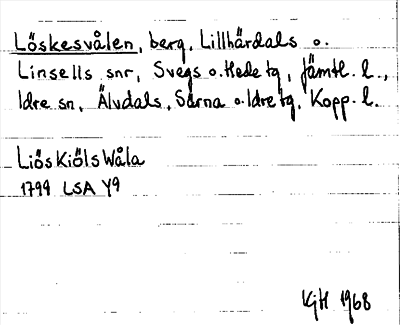 Löskesvålen, berg, Lillhärdals o.
Linsells snr, Svegs o. Hede tg, Jämtl. l.,
Idre sn, Älvdals, Särna o. Idre tg, Kopp. l.
Liös Kiöls Wåla
1799 LSA Y9
KgH 1968